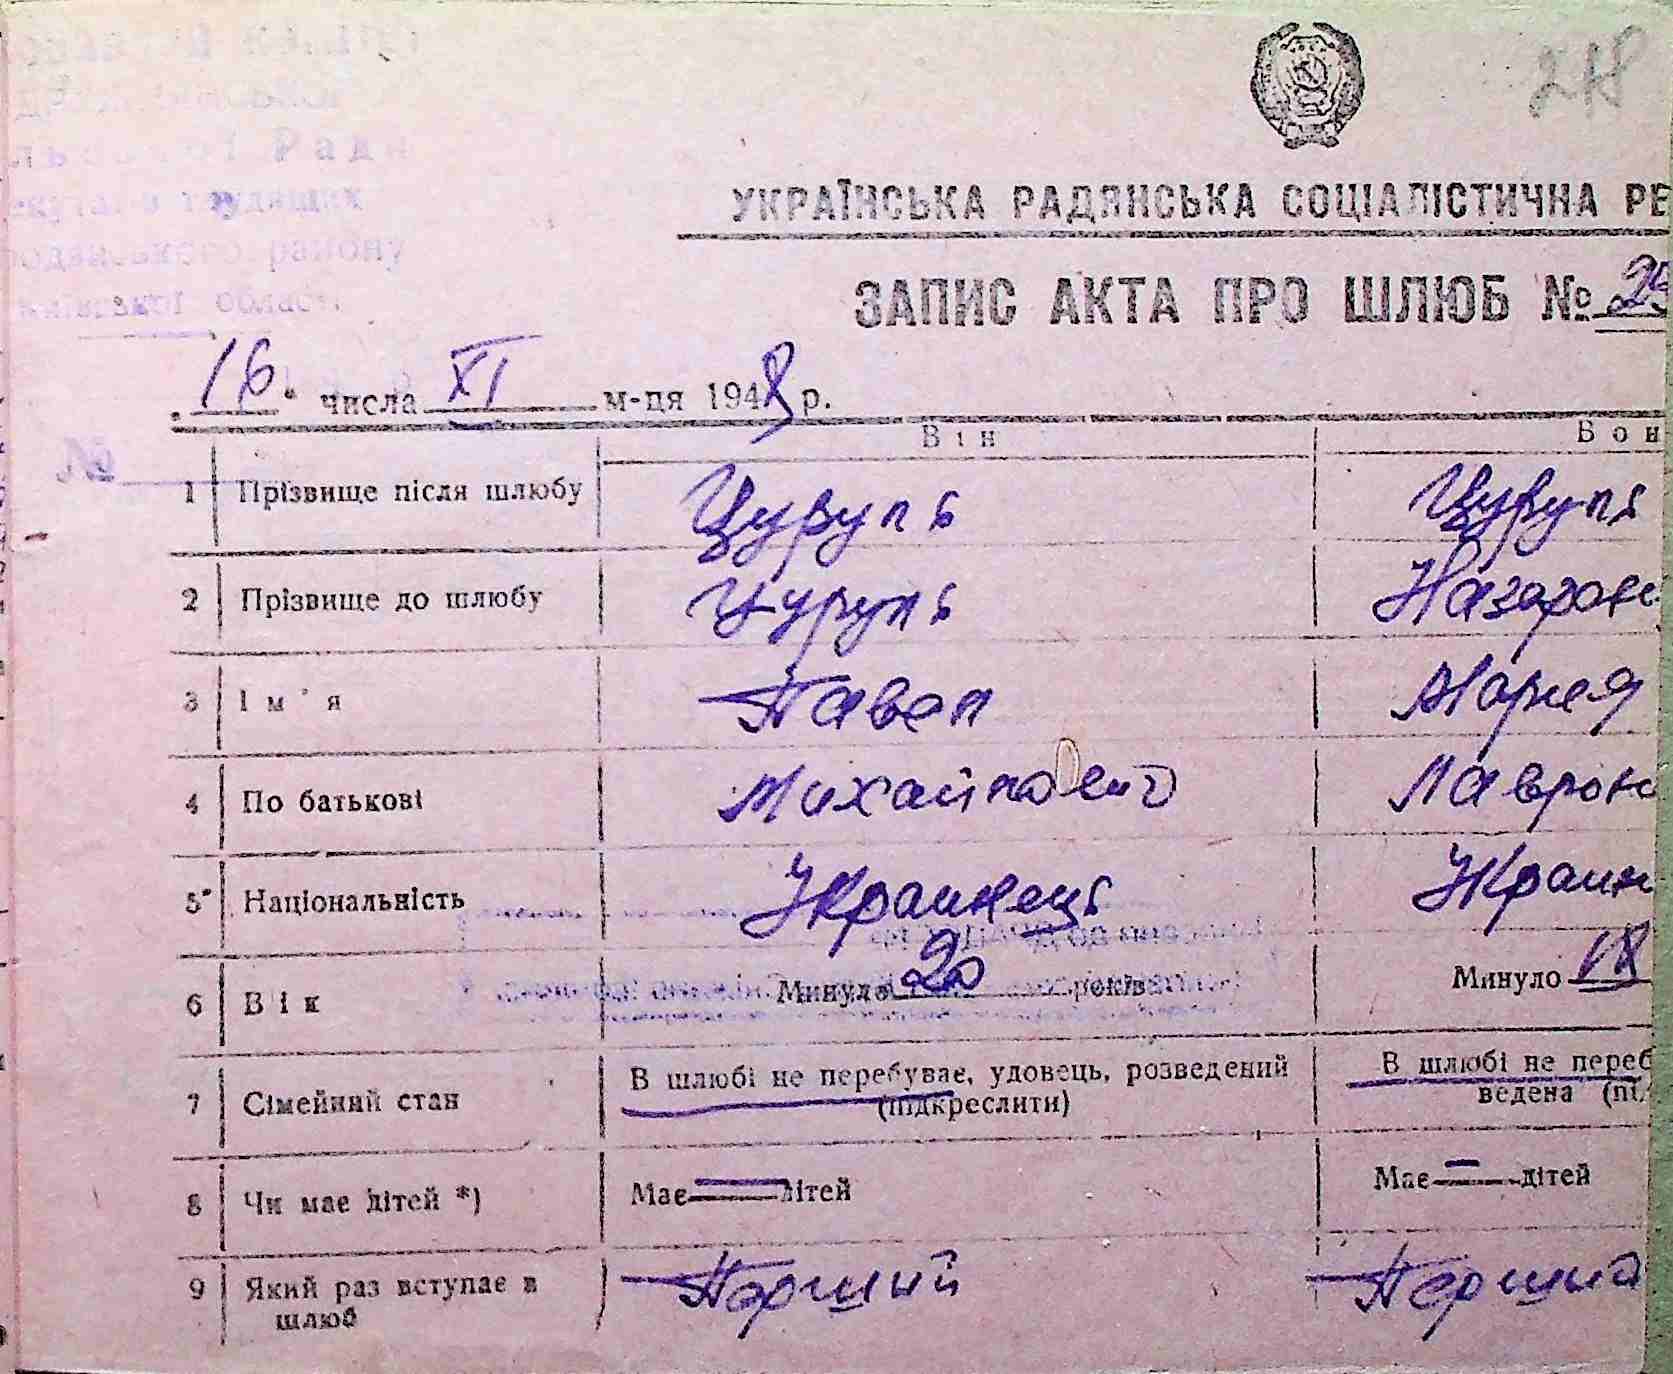 28
Ради
трудящих
району
Київської області
УКРАЇНСЬКА РАДЯНСЬКА СОЦІАЛІСТИЧНА РЕ
ЗАПИС АКТА ПРО ШЛЮБ № 25
"16" числа XI м-ця 1948 р.
№
Він Вон
1 Прізвище після шлюбу Цурупь Цурупь
2 Прізвище до шлюбу Цурупь Назарен
3 Ім'я Павел Мария
4 По батькові Михайлович Лаврон
5 Національність Украинець Украин
6 Вік Минуло 20 років Минуло 18
7 Сімейний стан В шлюбі не перебуває, удовець, розведений В шлюбі не переб
(підкреслити) ведена (пі
8 Чи має дітей *) Має — дітей Має — дітей
9 Який раз вступає в Перший Перший
шлюб